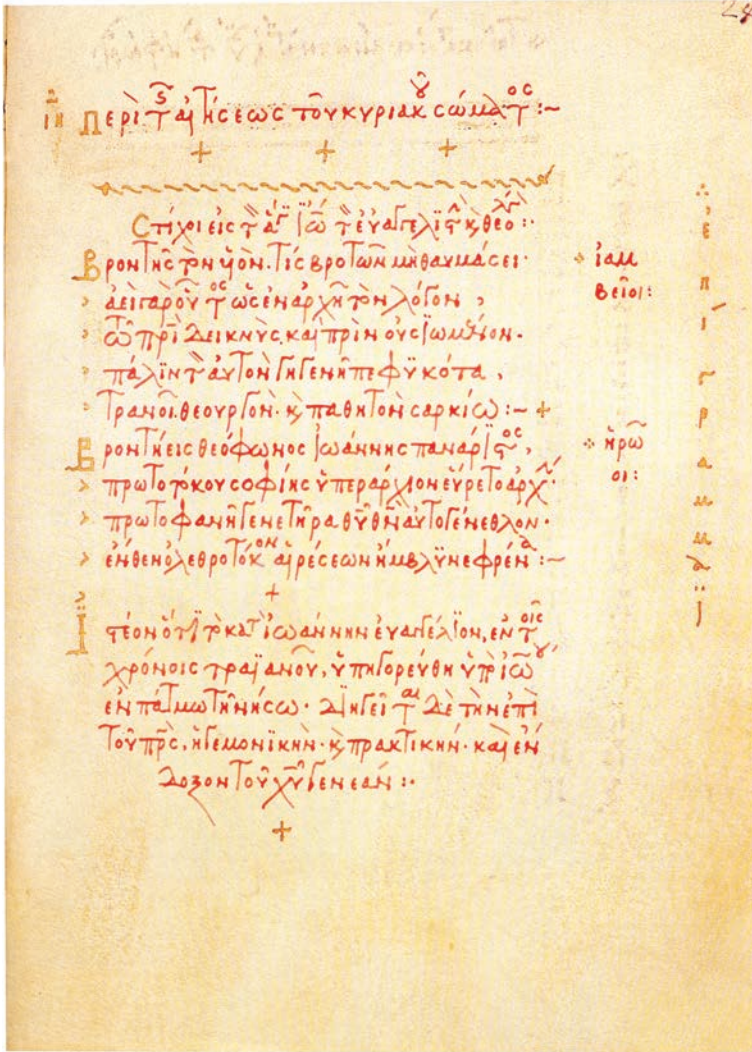 ιη Περὶ τ αἰτήσεως τοῦ κυριακοῦ σώματος :~
+ + +
Στίχοι εἰς τ ἅγ Ἰω τ εὐαγγελιστ κ θεολγ :·
Βροντῆς τὸν υἱὸν. τίς βροτῶν μὴ θαυμάσει·
ἀεὶ γὰρ οὗτος ὡς ἐν ἀρχῆ τὸν λόγον,
τῶ πρὶ δεικνὺς, καὶ πρὶν
πάλιν τ αὐτὸν γῆ γενῆ πεφυκότα,
τρανοῖ. θεουργὸν· κ παθητὸν σαρκίω :~ +
Βροντήεις θεόφωνος Ἰωάννης πανάριστος,
πρωτοτόκου σοφίης ὑπεράρχιον εὕρετο ἀρχήν·
πρωτοφανῆ γενετῆρα θυ θῆν αὐτογένεθλον·
ἔνθεν ὀλεθροτόκον αἱρέσεων ἤμβλυνε φρένα :~
+
Ἰστέον ὅτι τὸ κατ Ἰωάννην εὐαγγέλιον, ἐν τοῖς
χρόνοις τραϊανοῦ, ὑπηγορεύθη ὑπὸ Ἰω
ἐν πάτμω τῆ νήσω· διηγεῖται δὲ τὴν ἐπὶ
τοῦ πρς, ἡγεμονικὴν· κ πρακτικήν· καὶ ἔν
δοξον τοῦ χυ γενεάν :·
+
ἰαμ
βεῖοι:
ἡρῶ
οι:
ἐπίγραμμα :
24